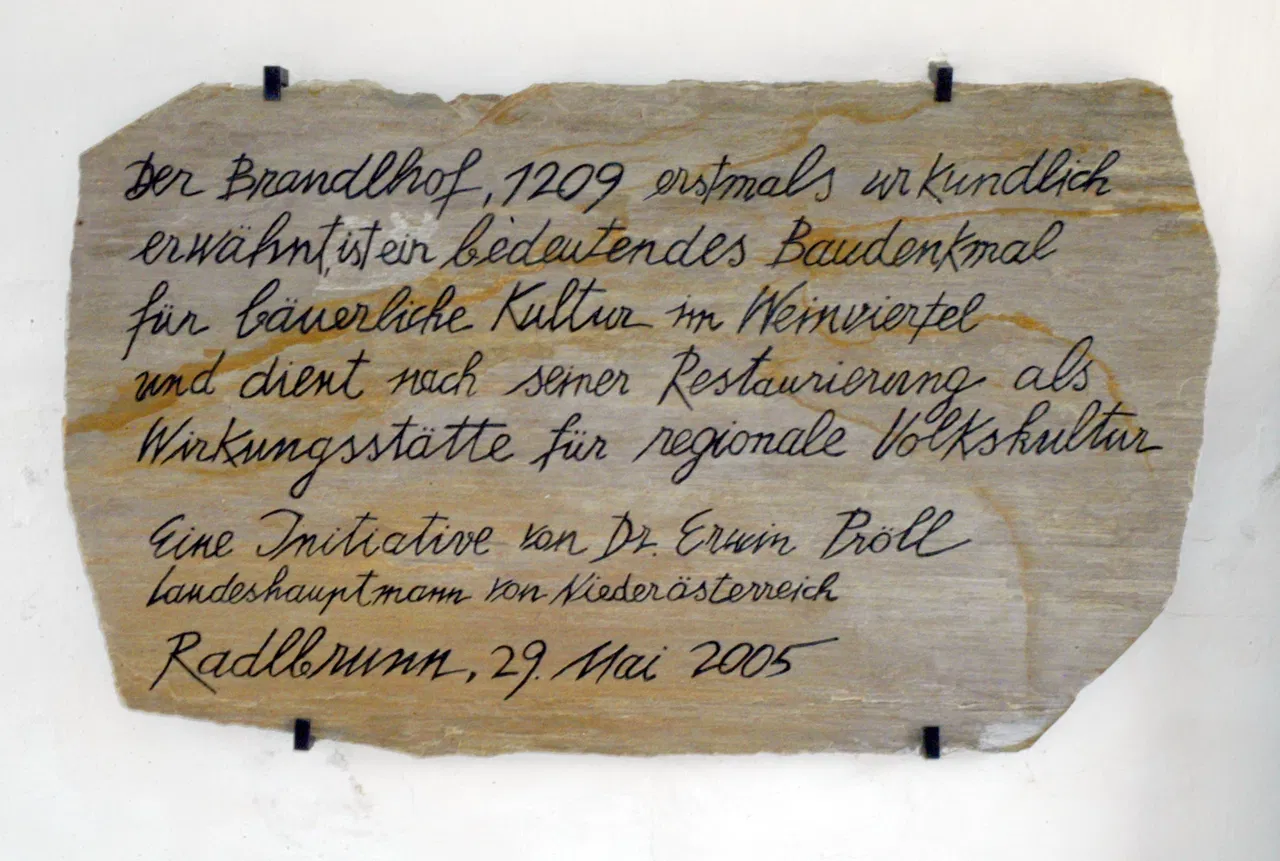 Der Brandlhof, 1209 erstmals urkundlich
erwähnt, ist ein bedeutendes Baudenkmal
für bäuerliche Kultur im Weinviertel
und dient nach seiner Restaurierung als
Wirkungsstätte für regionale Volkskultur
Eine Initiative von Dr. Erwin Pröll
Landeshauptmann von Niederösterreich
Radlbrunn, 29. Mai 2005